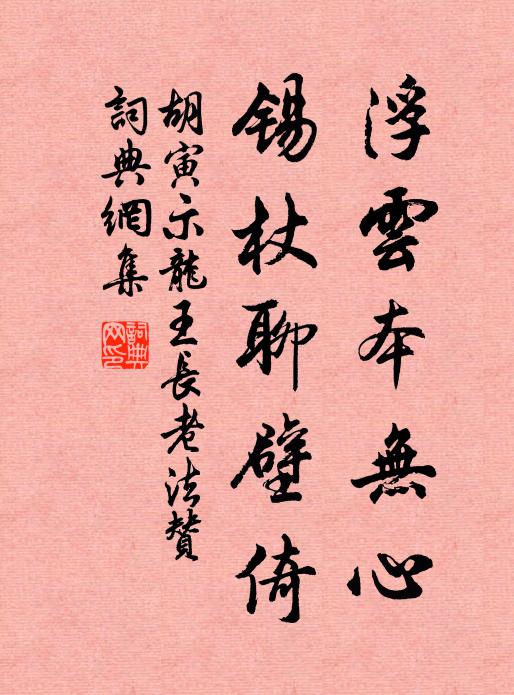 浮雲本無心
錫杖聊壁倚
胡寅示龍王長老法贊
詞典網集
詞典網印